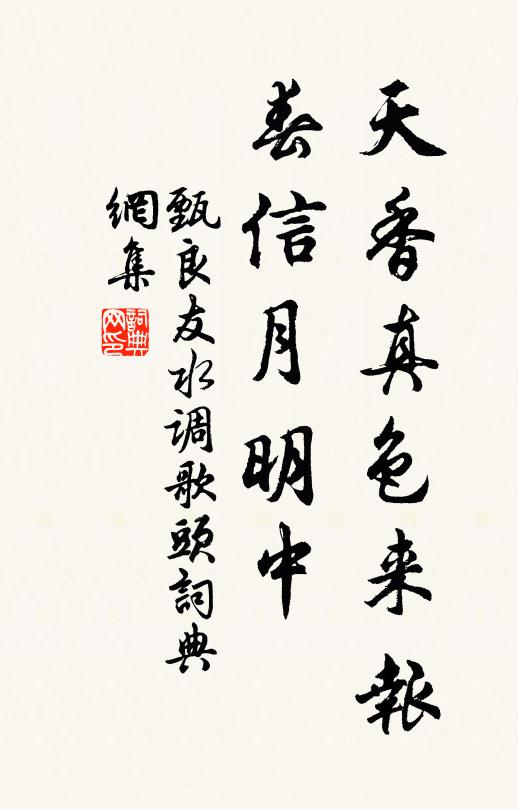 天香真色来報
春信月明中
甄良友水调歌頭詞典
網集
詞典
网印